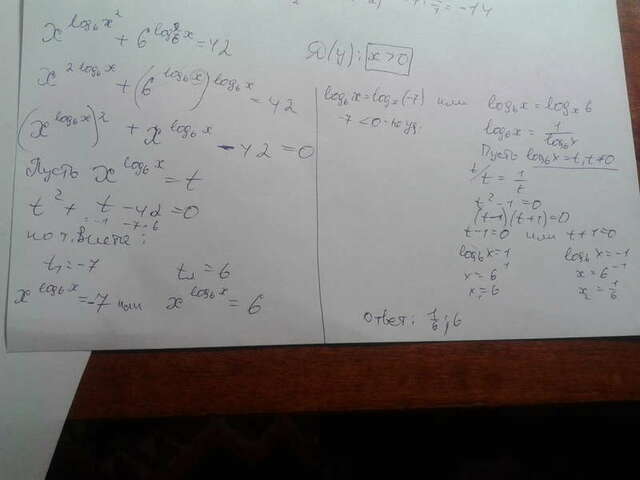 = -14
x^{log_6 x^2} + 6^{log_6^2 x} = 42
D(y): x>0
x^{2 log_6 x} + (6^{log_6 x})^{log_6 x} = 42
(x^{log_6 x})^2 + x^{log_6 x} - 42 = 0
Пусть x^{log_6 x} = t
t^2 + t - 42 = 0
= -1 -7; 6
по т. Виета:
t_1 = -7 t_2 = 6
x^{log_6 x} = -7 или x^{log_6 x} = 6
log_6 x = log_x (-7) или log_6 x = log_x 6
-7 < 0
log_6 x = 1/log_6 x
Пусть log_6 x = t, t≠0
t = 1/t
t^2 - 1 = 0
(t-1)(t+1) = 0
t-1=0 или t+1=0
log_6 x = 1 log_6 x = -1
x = 6^1 x = 6^{-1}
x_1 = 6 x_2 = 1/6
Ответ: 1/6; 6